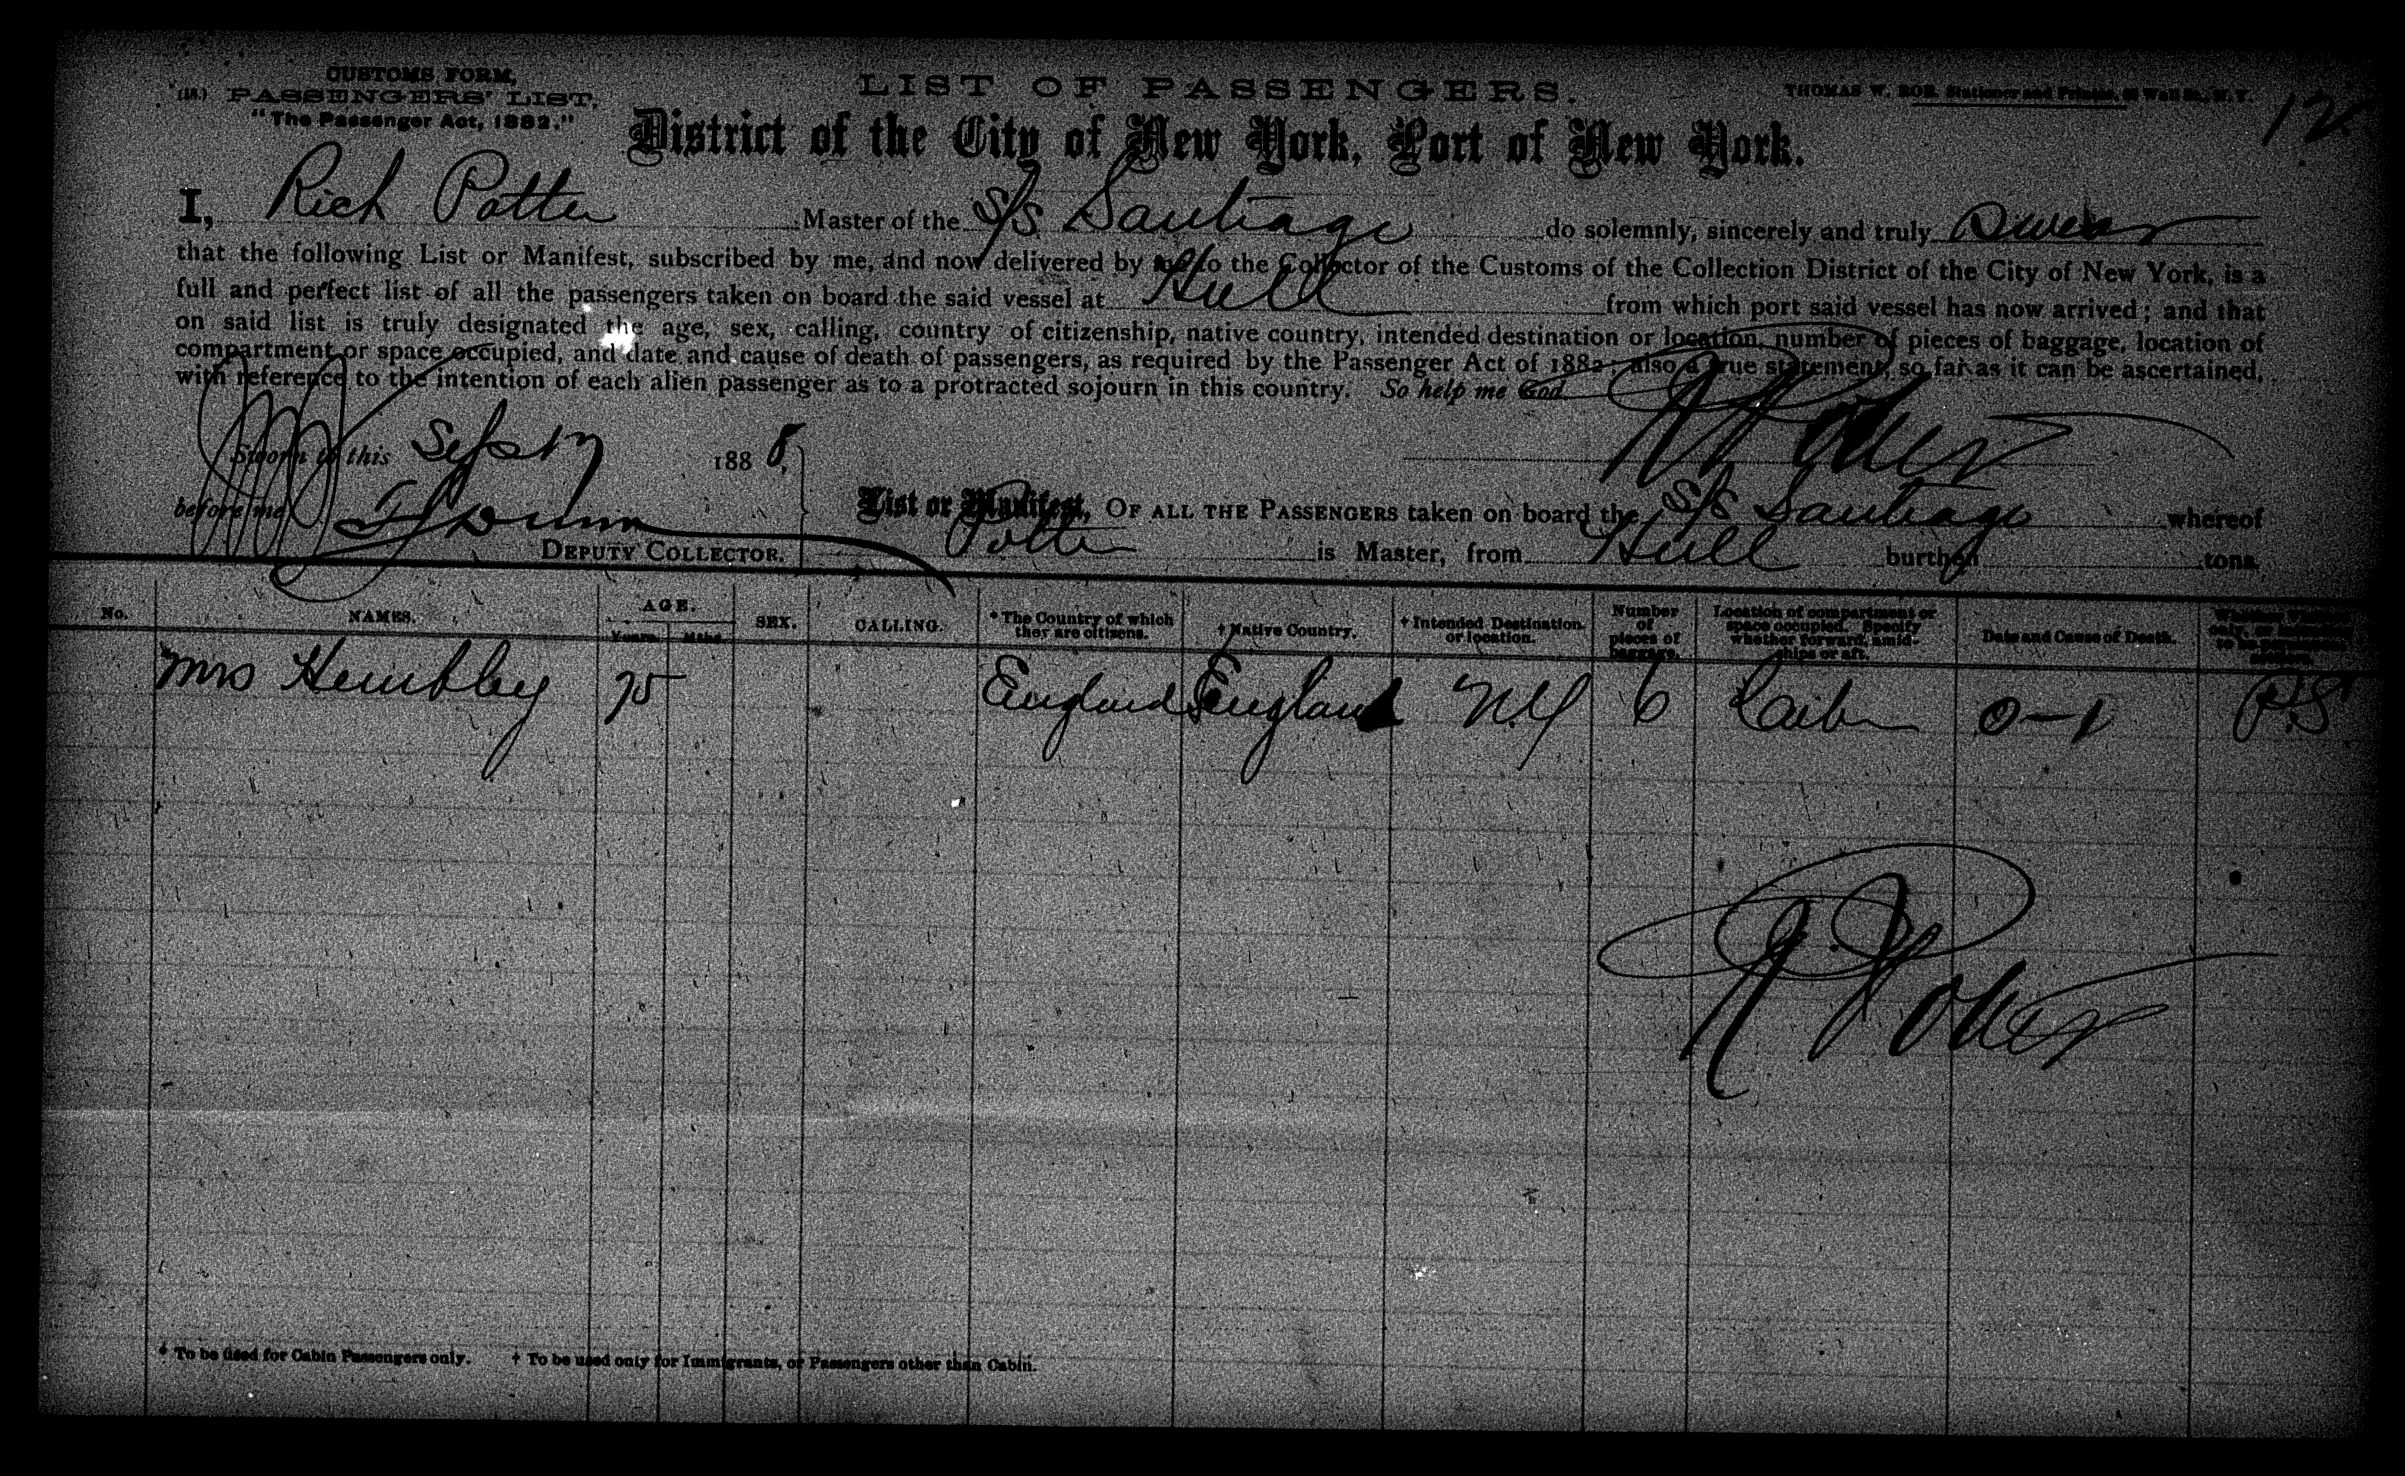 CUSTOMS FORM,
LIST OF PASSENGERS.
THOMAS W. ROE, Stationer and Printer, Wall St., N.Y.
(18.) PASSENGERS' LIST.
"The Passenger Act, 1882."
12
District of the City of New York, Port of New York.
I, Rich Potter Master of the S/S Santiago do solemnly, sincerely and truly Swear
that the following List or Manifest, subscribed by me, and now delivered by me to the Collector of the Customs of the Collection District of the City of New York, is a
full and perfect list of all the passengers taken on board the said vessel at Hull from which port said vessel has now arrived; and that
on said list is truly designated the age, sex, calling, country of citizenship, native country, intended destination or location, number of pieces of baggage, location of
compartment or space occupied, and date and cause of death of passengers, as required by the Passenger Act of 1882; also a true statement, so far as it can be ascertained,
with reference to the intention of each alien passenger as to a protracted sojourn in this country. So help me God.
R Potter
Sworn to this Sep 17 1888,
before me Dunn
DEPUTY COLLECTOR.
List or Manifest, OF ALL THE PASSENGERS taken on board the S/S Santiago whereof
Potter is Master, from Hull burthen tons.
No. NAMES. AGE. Years. Mths. SEX. CALLING. * The Country of which they are citizens. † Native Country. † Intended Destination or location. Number of pieces of baggage. Location of compartment or space occupied. Specify whether forward, amidships or aft. Date and Cause of Death.
Mrs Hembley 75 England England N.Y 6
R Potter
* To be used for Cabin Passengers only. † To be used only for Immigrants, or Passengers other than Cabin.